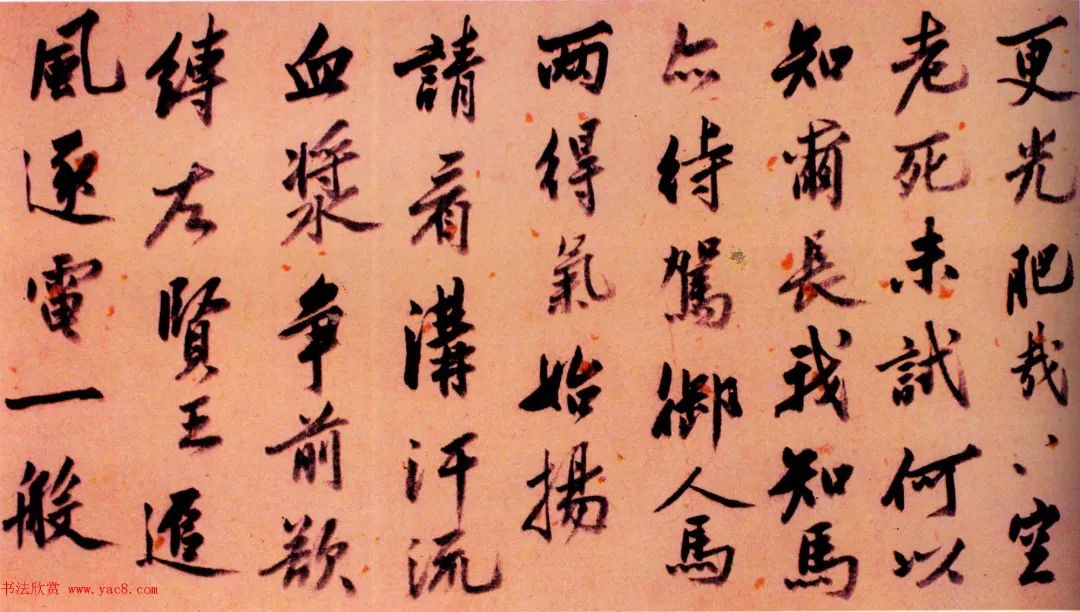 更光肥哉、、空
老死未試何以
知爾長我知馬
亦待駕御人馬
两得氣始揚
請看溝汗流
血漿争前欲
縛左賢王追
風逐電一般
书法欣赏 www.yac8.com